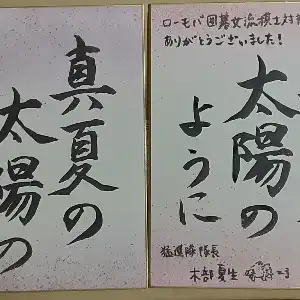 真夏の
太陽の
ローモバ囲碁女流棋士対
ありがとうございました!
太陽の
ように
猛進隊隊長
木部夏生